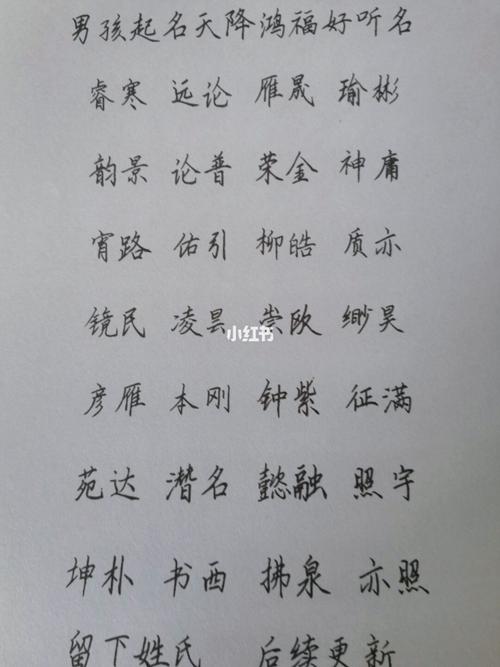 男孩起名天降鸿福好听名
睿寒 远论 雁晟 瑜彬
韵景 论普 荣金 神庸
宵路 佑引 柳皓 质亦
镜民 凌昙 崇欧 缈昊
小红书
彦雁 本刚 钟紫 征满
苑达 潜名 懿融 照宇
坤朴 书西 拂泉 亦照
留下姓氏 后续更新